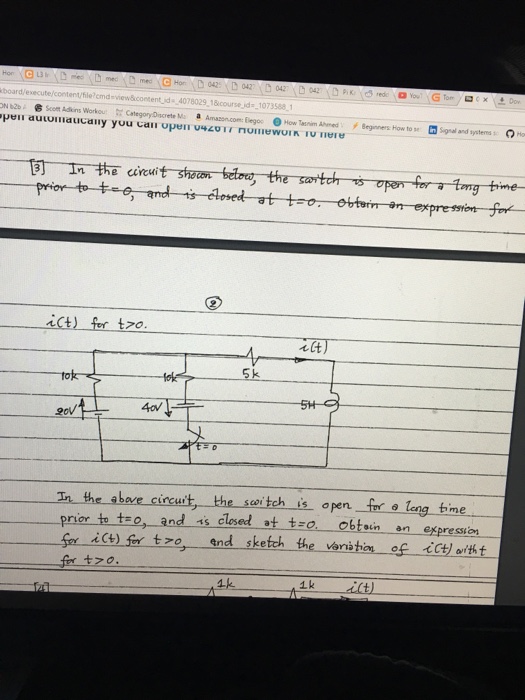 kboard/execute/content/file?cmd=view&content_id=_4078029_1&course_id=_1073568_1
Scott Adkins Workou
Category:Discrete M
Amazon.com: Elegoo
How Tasnim Ahmed
Beginners: How to
Signal and systems
open automatically you can open 042017 Homework 10 here
[3] In the circuit shown below, the switch is open for a long time
prior to t=0, and is closed at t=0. Obtain an expression for
2
i(t) for t>0.
i(t)
5k
10k
10k
20V
40V
5H
t=0
In the above circuit, the switch is open for a long time
prior to t=0, and is closed at t=0. Obtain an expression
for i(t) for t>0, and sketch the variation of i(t) with t
for t>0.
1k
1k
i(t)